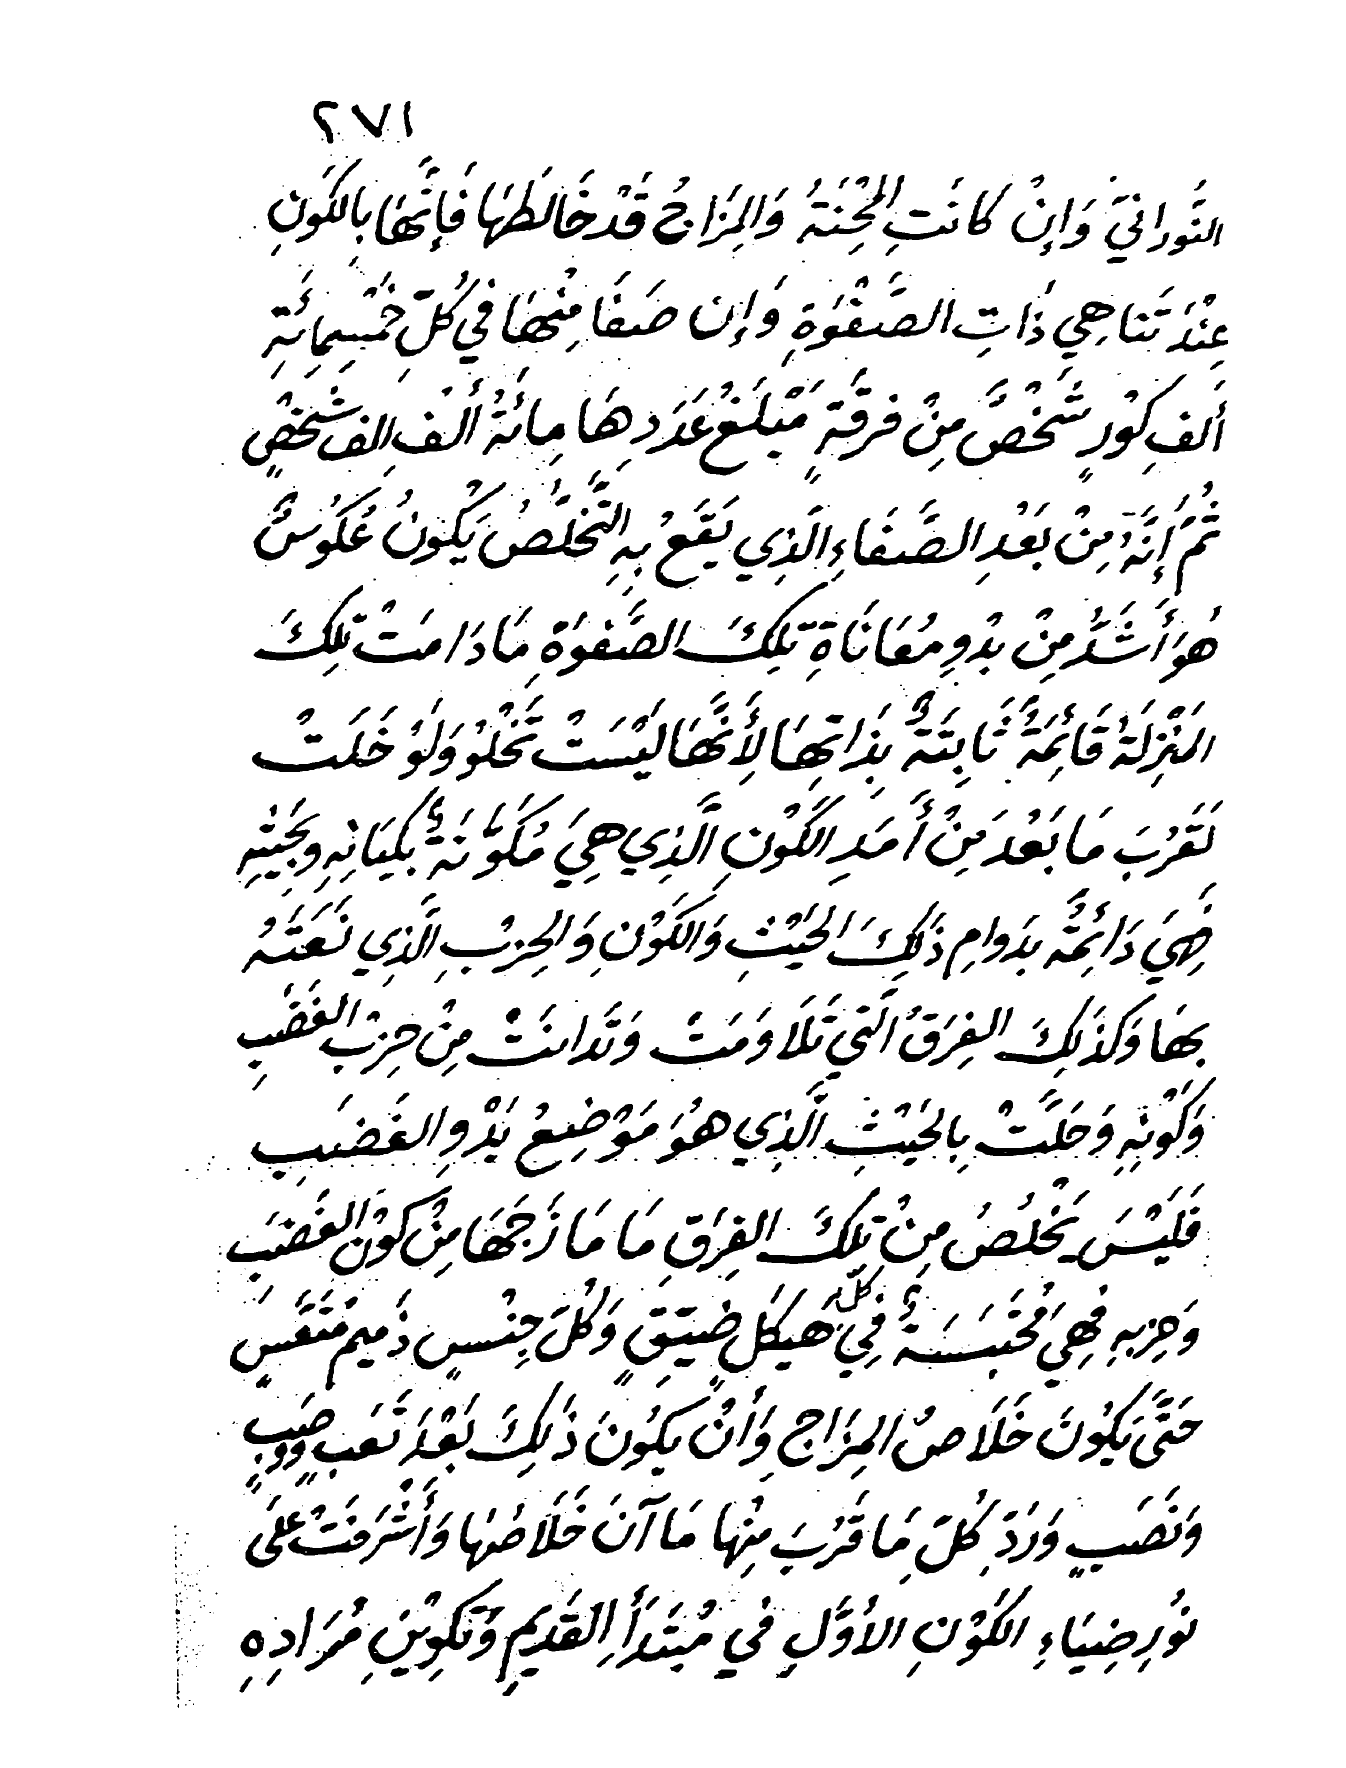 ٢٧١
النُّورَانِيَّ وَإِنْ كَانَتِ المِحْنَةُ وَالمِزَاجُ قَدْ خَالَطَهَا فَإِنَّهَا بِالكَونِ
عِنْدَ تَنَاهِي ذَاتِ الصَّفْوَةِ وَإِن صَفَا مِنْهَا فِي كُلِّ خَمْسِمِائَةِ
أَلفِ كَوْرٍ شَخْصٌ مِنْ فِرقَةٍ مَبْلَغُ عَدَدِهَا مِائَةُ أَلْفِ الِف شَخْصٍ
ثُمَّ إِنَّهُ مِنْ بَعْدِ الصَّفَاءِ الَّذِي يَقَعُ بِهِ التَّخَلُّصُ يَكُونُ عُكُوسٌ
هُوَ أَشَدُّ مِنْ بَدْوِ مُعَانَاةِ تِلكَ الصَّفوَةِ مَا دَامَتْ تِلكَ
المَنْزِلَةُ قَائِمَةً ثَابِتَةٌ بِذَاتِهَا لِأَنَّهَا لَيْسَتْ تَخْلُو وَلَوْ خَلَتْ
لَقَرُبَ مَا بَعْدَ مِنْ أَمَدِ الكَوْنِ الَّذِي هِيَ مُكَوَّنَةٌ بِكِيَانِهِ وَحَيْثِهِ
فَهِيَ دَائِمَةٌ بِدَوامِ ذَلِكَ الحَيْثِ وَالكَوْنِ وَالحِزبِ الَّذِي نَعَتَهُ
بِهَا وَكَذَلِكَ الفِرَقُ الَّتِي تَلَاوَمَتْ وَتَدَانَتْ مِنْ حِزبِ الغَضَبِ
وَكَوْنِهِ وَحَلَّتْ بِالحَيْثِ الَّذِي هُوَ مَوْضِعُ بَدْوِ الغَضَبِ
فَلَيْسَ يَخْلُصُ مِنْ تِلكَ الفِرَقِ مَا مَازَجَهَا مِنْ كَوْنِ الغَضَبِ
وَحِزبِهِ فَهِيَ مُحْتَبَسَةٌ فِي كُلِّ هَيكَلٍ ضَيِّقٍ وَكُلِّ جِنْسٍ ذَمِيمٍ مُتَقَبَّسٍ
حَتَّى يَكُونَ خَلَاصُ المِزَاجِ وَأَنْ يَكُونَ ذَلِكَ بَعْدَ تَعَبٍ وَوَصَبٍ
وَنَصَبٍ وَرَدَّ كُلَّ مَا قَرُبَ مِنْهَا مَا آنَ خَلَاصُهَا وَأَشْرَفَتْ عَلَى
نُورِ ضِيَاءِ الكَوْنِ الأَوَّلِ فِي مُبْتَدَأِ القَدِيمِ وَتَكوِينِ مُرَادِهِ